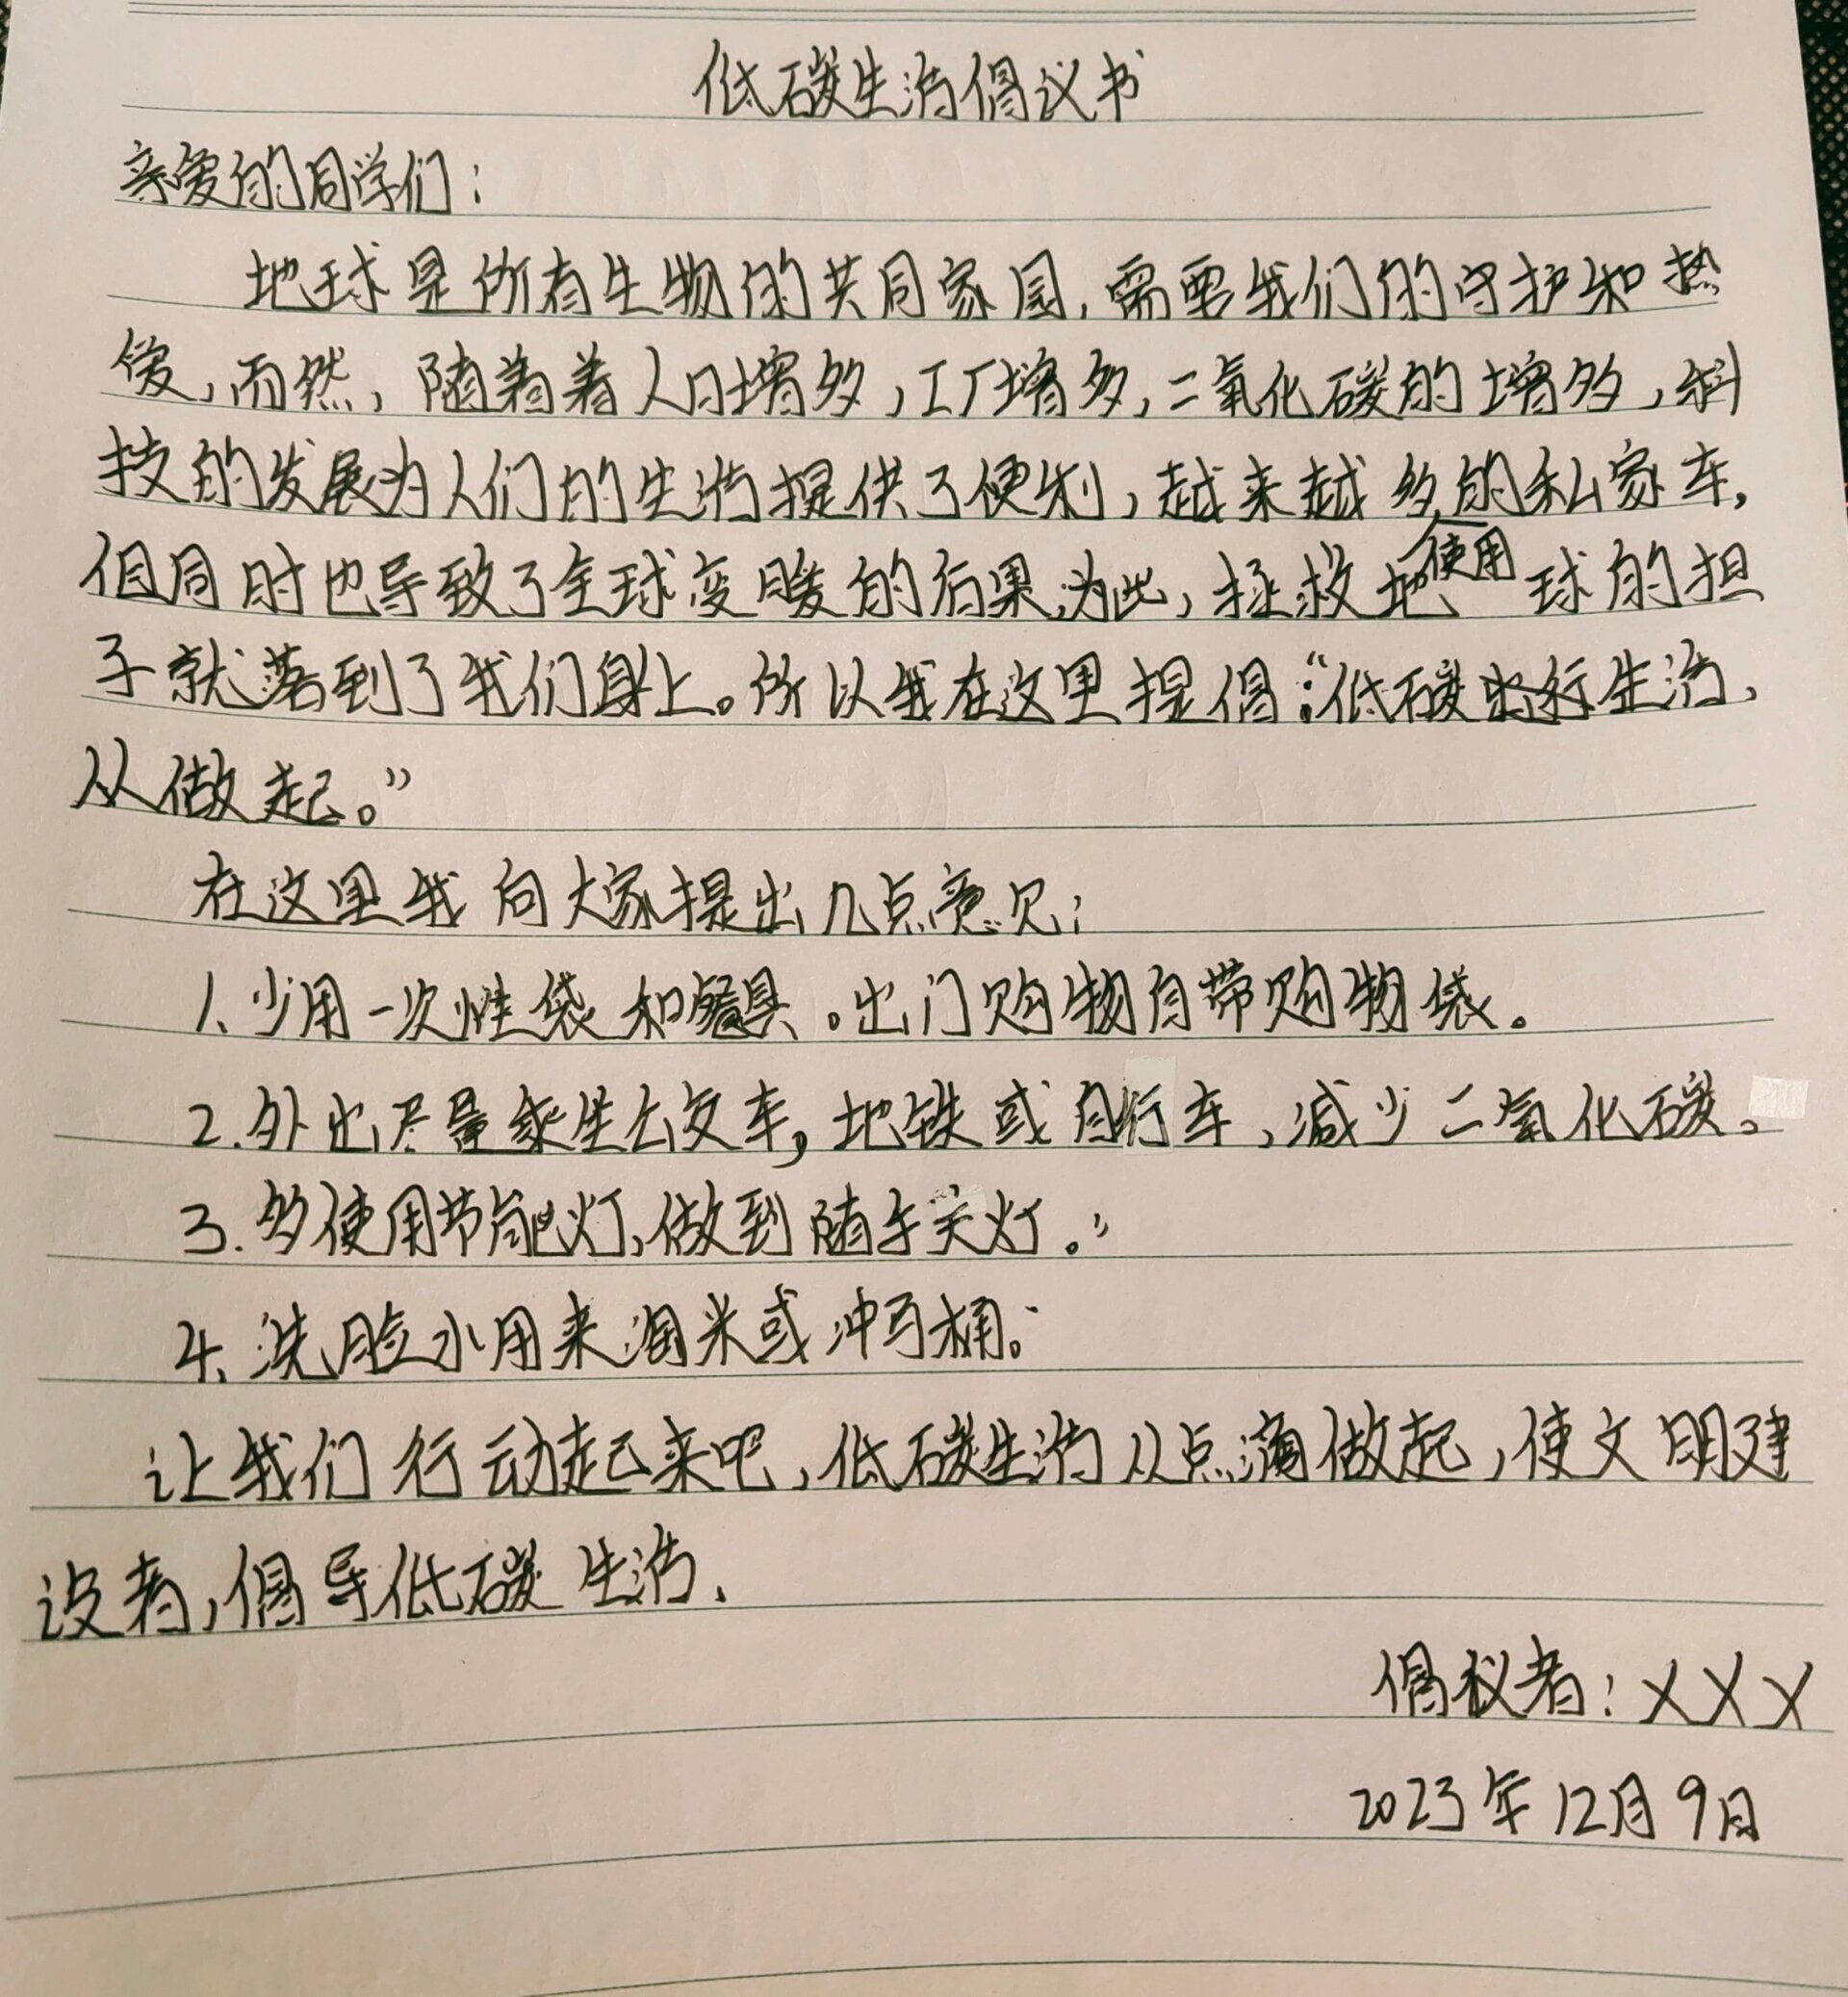 低碳生活倡议书
亲爱的同学们：
地球是所有生物的共同家园，需要我们的守护和热
爱，而然，随着着人口增多，工厂增多，二氧化碳的增多，科
技的发展为人们的生活提供了便利，越来越多的使用私家车，
但同时也导致了全球变暖的后果，为此，拯救地球的担
子就落到了我们身上。所以我在这里提倡：“低碳生活，
从做起。”
在这里我向大家提出几点意见：
1、少用一次性袋和餐具。出门购物自带购物袋。
2.外出尽量乘坐公交车，地铁或自行车，减少二氧化碳。
3.多使用节能灯，做到随手关灯。”
4、洗脸水用来淘米或冲马桶。
让我们行动起来吧，低碳生活从点滴做起，使文明建
设者，倡导低碳生活、
倡议者：XXX
2023年12月9日